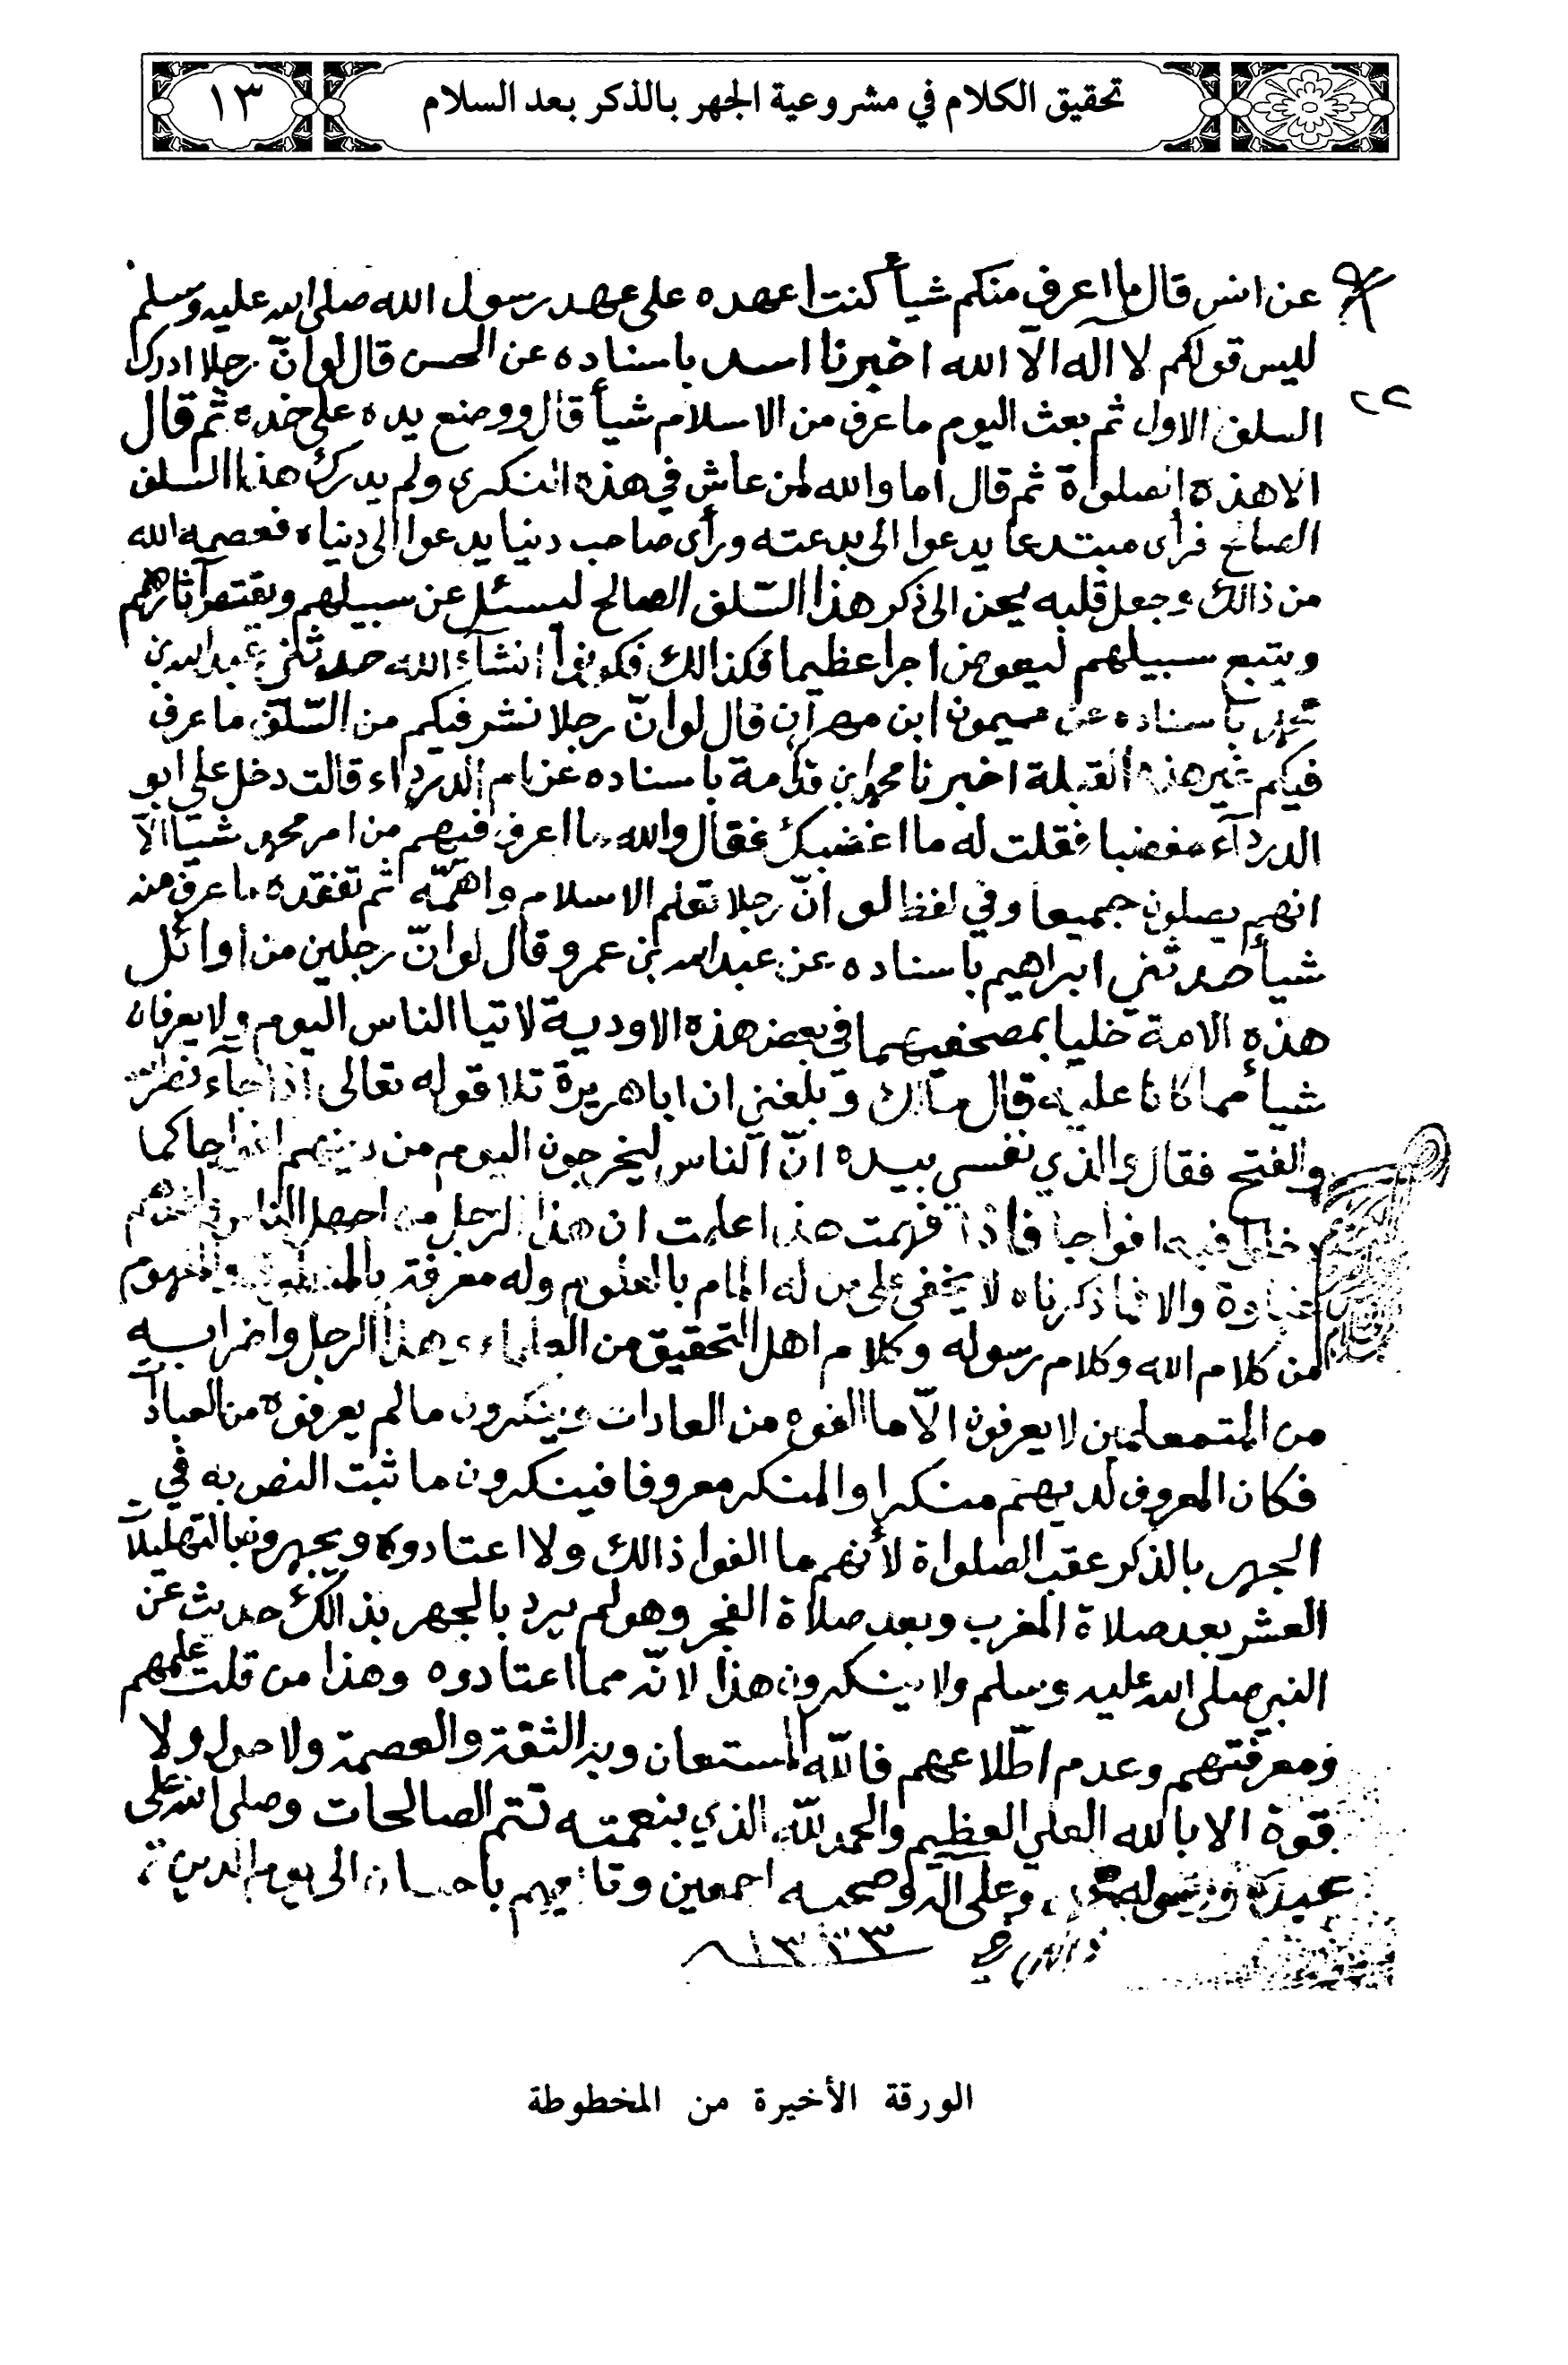 تحقيق الكلام في مشروعية الجهر بالذكر بعد السلام
١٣
عن انس قال ما اعرف منكم شيأ كنت اعهده على عهد رسول الله صلى الله عليه وسلم
ليس قولكم لا اله الا الله اخبرنا اسد باسناده عن الحسن قال لو انّ رجلا ادرك
٢٢
السلف الاول ثم بعث اليوم ما عرف من الاسلام شيأ قال ووضع يده على خده ثم قال
الا هذه الصلواة ثم قال اما والله لمن عاش في هذه النكرى ولم يدرك هذا السلف
الصالح فرأى مبتدعا يدعوا الى بدعته ورأى صاحب دنيا يدعوا الى دنياه فعصمه الله
من ذالك وجعل قلبه يحن الى ذكر هذا السّلف الصالح ليسئل عن سبيلهم ويقتص آثارهم
ويتبع سبيلهم ليعوض اجرا عظيما فكذالك فكونوا انشآء الله حدثني عبد الله بن
محمد باسناده عن ميمون ابن مهران قال لو انّ رجلا نشر فيكم من السّلف ما عرف
فيكم غير هذه القبلة اخبرنا محمد ابن قدامة باسناده عن ام الدرداء قالت دخل علي ابو
الدردآء مغضبا فقلت له ما اغضبك فقال والله ما اعرف فيهم من امر محمد شيأ الا
انهم يصلون جميعا وفي لفظ لو انّ رجلا تعلم الاسلام واهمّه ثم تفقده ما عرف منه
شيأ حدثني ابراهيم باسناده عن عبد الله بن عمرو قال لو انّ رجلين من اوائل
هذه الامة خليا بمصحفيهما في بعض هذه الاودية لاتيا الناس اليوم ولا يعرفان
شيأ مما كانا عليه قال مالك وبلغني ان ابا هريرة تلا قوله تعالى اذا جآء نصر الله
والفتح فقال والذي نفسي بيده انّ الناس ليخرجون اليوم من دينهم افواجا كما
دخلوا فيه افواجا فاذا فهمت هذا علمت ان هذا الرجل من اجهل الناس
والا فما ذكرناه لا يخفى على من له المام بالعلوم وله معرفة بالمنطوق والمفهوم
من كلام الله وكلام رسوله وكلام اهل التحقيق من العلماء هذا الرجل واضرابه
من المتمعلمين لا يعرفون الاّ ما الفوه من العادات وينكرون ما لم يعرفوه من العبادات
فكان المعروف لديهم منكرا والمنكر معروفا فينكرون ما ثبت النص به في
الجهر بالذكر عقب الصلواة لأنهم ما الفوا ذالك ولا اعتادوه ويجهرون بالتهليلات
العشر بعد صلاة المغرب وبعد صلاة الفجر وهو لم يرد بالجهر بذالك حديث عن
النبي صلى الله عليه وسلم ولا ينكرون هذا لانّه مما اعتادوه وهذا من قلت علمهم
ومعرفتهم وعدم اطّلاعهم فالله المستعان وبه الثقة والعصمة ولا حول ولا
قوة الا بالله العلي العظيم والحمد لله الذي بنعمته تتم الصالحات وصلى الله على
عبده ورسوله محمد وعلى آله وصحبه اجمعين وتابعيهم باحسان الى يوم الدين
١٣٣٣
الورقة الأخيرة من المخطوطة